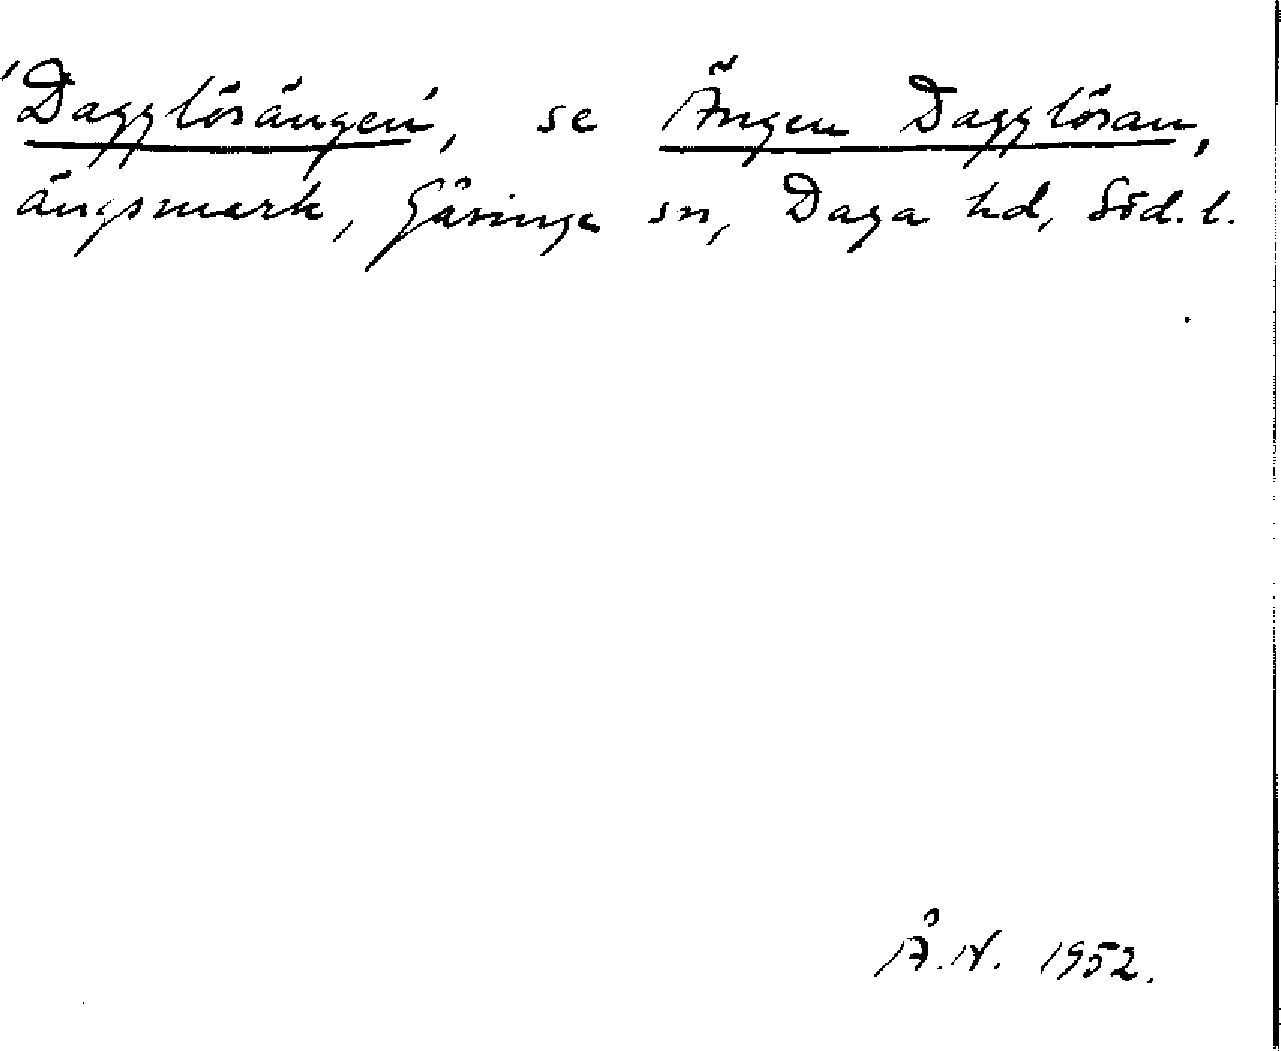 'Dagglösängen', se Ängen Dagglösan,
ängsmark, Gåsinge sn, Daga hd, Söd. l.
Å. N. 1952.